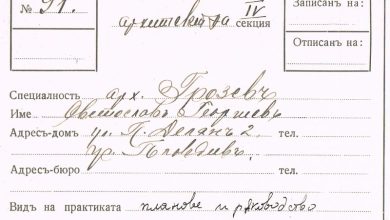 № 91.
архитектурна IV секция
Записанъ на:
Отписанъ на:
Специалность арх. Грозевъ
Име Светославъ Георгиевъ
Адресъ-домъ ул. П. 2 тел.
гр. Пловдивъ.
Адресъ-бюро тел.
Видъ на практиката планове и рѫководство